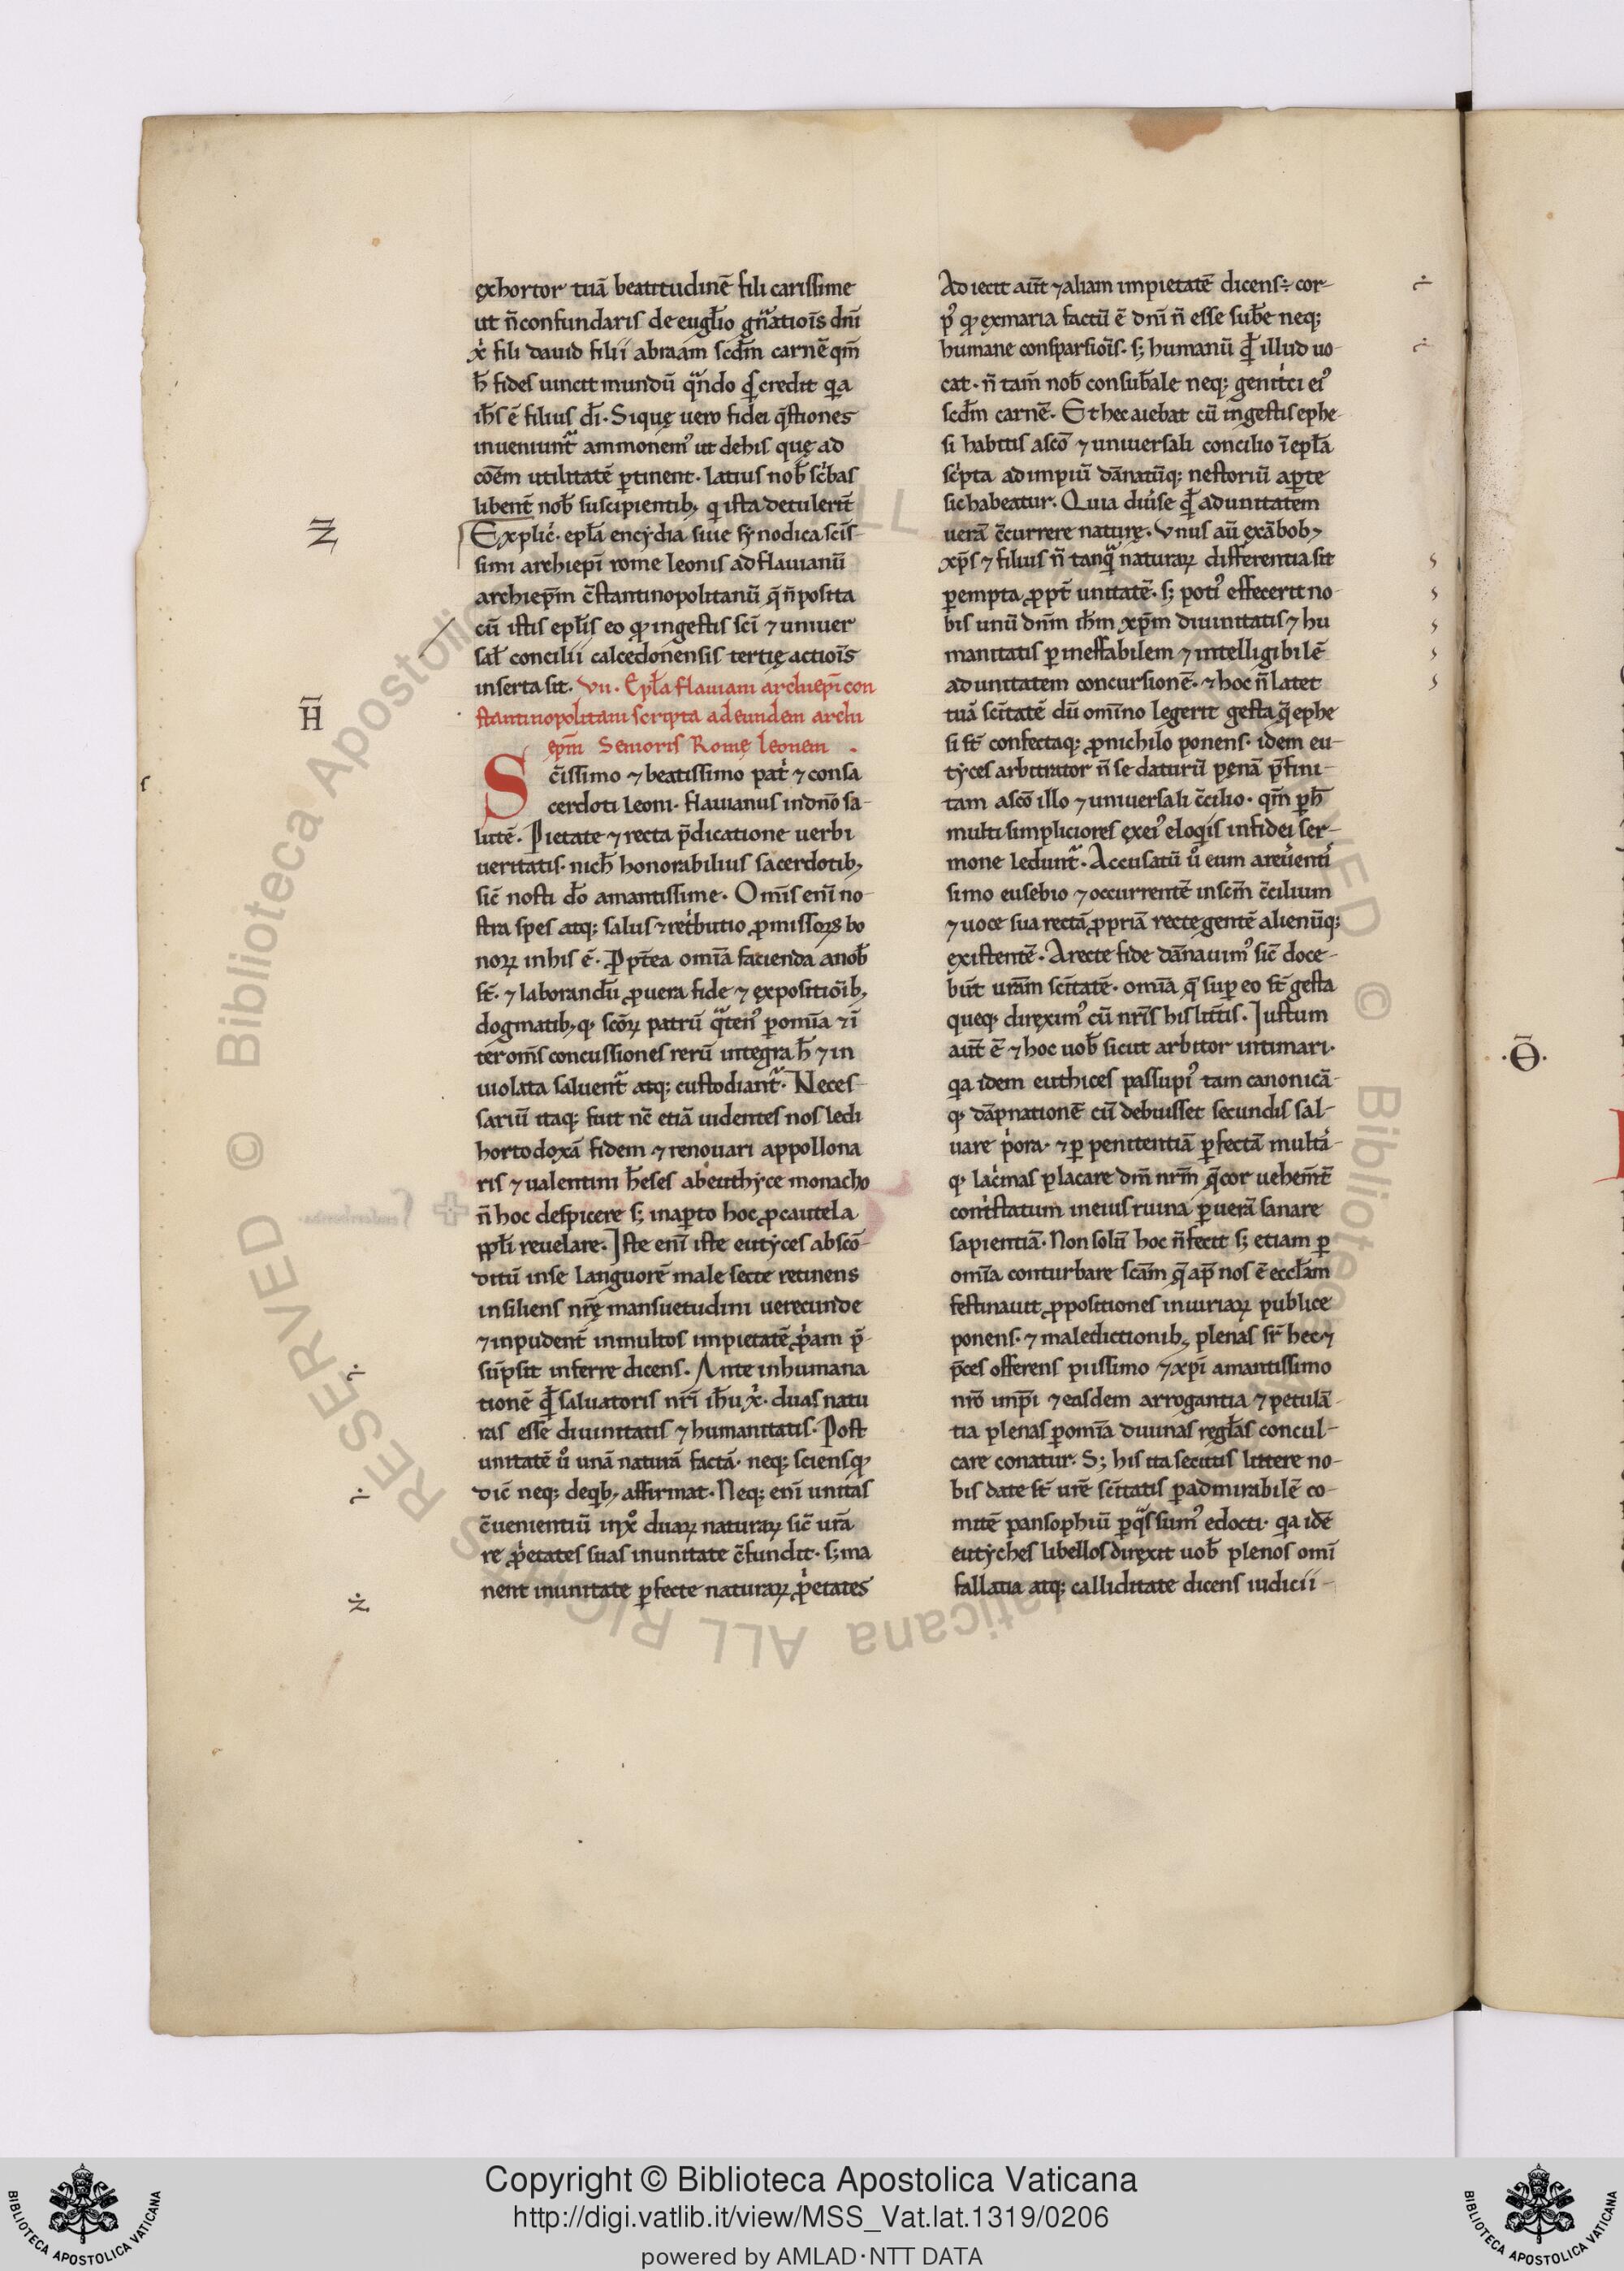 ęxhortor tuā beatitudinē fili carissime
ut n̄ confundaris de eugl̄io gn̄atiōis dn̄i
x̓ fili dauid filii abraam scd̄m carnē qm̄
h̄ fides uincit mundū qn̄do q credit qa
ih̄s ē filius dī. Siquę uero fidei q̄stiones
inueniunt̄ ammonem᾽ ut de his quę ad
cōēm utilitatē ꝑtinent. latius nob̄ sc̓bas
libent̄ nob̄ suscipientib; q ista detulerit̄
Explic̓. epl̄a encydia siue synodica scīs-
simi archiepī rome leonis ad flauianū
archiep̄m c̄stantinopolitanū q̄ n̄ posita
cū istis epl̄is eo ꝙ in gestis scī ⁊ uniuer
sal̄ concilii calcedonensis tertię actiōis
inserta sit. vii. Epl̄a flauiani archiepī con
stantinopolitani scripta ad eundem archi
ep̄m Senioris Romę leonem .
Sc̄issimo ⁊ beatissimo pat̓ ⁊ consa
cerdoti leoni. flauianus in dn̄o sa-
lutē. Pietate ⁊ recta p̄dicatione uerbi
ueritatis. nich̄ honorabilius sacerdotib;
sic̄ nosti dō amantissime. Om̄s enī no-
stra spes atq; salus ⁊ ret̓butio ꝓmissoꝝ bo
noꝝ in his ē. Ꝓpt̄ea om̄ia facienda a nob̄
st̄. ⁊ laborandū ꝓ uera fide ⁊ ęxpositiōib;
dogmatib; q; scōꝝ patrū q̄ten᾽ ꝑ om̄ia ⁊ ī
ter om̄s concussiones rerū integra h̄ ⁊ in
uiolata saluent̄ atq; custodiant̄. Neces-
sariū itaq; fuit nc̄ etiā uidentes nos ledi
hortodoxā fidem ⁊ renouari appollona
ris ⁊ ualentini h̄eses ab euthyce monacho
n̄ hoc despicere s; in aꝑto hoc ꝓ cautela
ppl̄i reuelare. Iste enī iste eutyces abscō-
ditū in se languorē male secte retinens
insiliens nr̄ę mansuetudini uerecunde
⁊ inpudent̄ in multos impietatē ꝓ̓am p̄-
sūpsit inferre dicens. Ante inhumana
tionē q̄ saluatoris nr̄i ih̄u x̓. duas natu
ras esse diuinitatis ⁊ humanitatis. Post
unitatē u᷎ unā naturā factā. neq; sciens ꝙ
dic̄ neq; de qb; affirmat. Neq; enī unitas
c̄uenientiū in xo᷎ duaꝝ naturaꝝ sic̄ ur̄a
re ꝓ̓etates suas in unitate c̄fundit. s; ma
nent in unitate ꝑfecte naturaꝝ ꝓ̓etates
Adiecit aut̄ ⁊ aliam impietatē dicens÷ cor-
p᾽ ꝙ ex maria factū ē dn̄i n̄ esse sub̄e neq;
humane consparsiōis. s; humanū q̄ illud uo-
cat. n̄ tam̄ nob̄ consub̄ale neq; genit̓ci ei᾽
scd̄m carnē. Et hec aiebat cū in gestis ephe-
si habitis a scō ⁊ uniuersali concilio ī epl̄a
sc̓pta ad impiū dānatūq; nestoriū aꝑte
sic habeatur. Quia diu̓se q̄ ad unitatem
uerā c̄currere naturę. Vnus aū ex ābob;
xp̄s ⁊ filius n̄ tanq̄ naturaꝝ differentia sit
ꝑempta ꝓpt̄ unitatē. s; poti᾽ effecerit no-
bis unū dn̄m ih̄m xp̄m diuinitatis ⁊ hu
manitatis ꝑ ineffabilem ⁊ intelligibilē
ad unitatem concursionē. ⁊ hoc n̄ latet
tuā scītatē dū omīno legerit gesta q̄ ephe
si st̄ confectaq; ꝓ nichilo ponens. idem eu-
tyces arbitrator n̄ se daturū pęnā p̄fini-
tam a scō illo ⁊ uniuersali c̄cilio. qm̄ ꝑ h̄
multi simpliciores ęx ei᾽ eloqis in fidei ser-
mone ledunt̄. Accusatū u᷎ eum a reu̓enti
simo eusebio ⁊ occurrentē in scm̄ c̄cilium
⁊ uoce sua rectā ꝓpriā recte gentē alienūq;
ęxistentē. A recte fide dānauim᾽ sic̄ doce-
būt uram̄ scītatē. om̄ia q̄ suꝑ eo st̄ gesta
queq; diręxim᾽ cū nr̄is his litt̄is. Iustum
aut̄ ē ⁊ hoc uob̄ sicut arbitor intimari.
qa idem euthices passupi᾽ tam canonicā-
q; dāpnationē cū debuisset secundis sal-
uare p̓ora. ⁊ ꝑ penitentiā ꝑfectā multā-
q; lac̓mas placare dn̄m nr̄m q̄ cor uehem̄t̄
cont̓statum in eius ruina ꝑ uerā sanare
sapientiā. Non solū hoc n̄ fecit s; etiam ꝑ
om̄ia conturbare scam̄ q̄ ap̄ nos ē eccl̄am
festinauit ꝓpositiones iniuriaꝝ publice
ponens. ⁊ maledictionib; plenas st̄ hec ⁊
p̄ces offerens piissimo ⁊ xpī amantissimo
nr̄o imp̄i ⁊ easdem arrogantia ⁊ petulā-
tia plenas ꝑ om̄ia diuinas regl̄as concul-
care conatur. S; his ita secutis littere no-
bis date st̄ ur̄e scītatis ꝑ admirabilē co-
mitē pansophiū ꝑ qs sum᾽ edocti. qa idē
eutyches libellos diręxit uob̄ plenos omī
fallatia atq; calliditate dicens iudicii-
H̄
.Θ̄.
Copyright © Biblioteca Apostolica Vaticana
http://digi.vatlib.it/view/MSS_Vat.lat.1319/0206
powered by AMLAD·NTT DATA
BIBLIOTECA APOSTOLICA VATICANA
BIBLIOTECA APOSTOLICA VATICANA
© Biblioteca Apostolica Vaticana ALL RIGHTS RESERVED